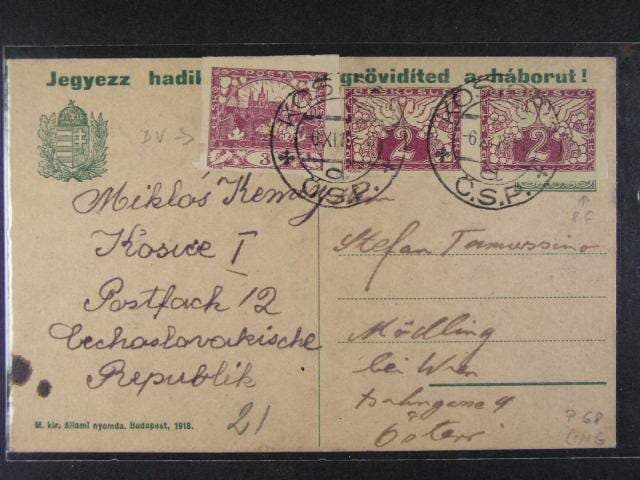 Jegyezz hadik grövidíted a háborut!
POŠTA
3
2
2
ČESKOSLOV
KOŠ
6 XI.19
Č.S.P.
KOŠ
-6
Č.S.P.
DV →
Miklós Kemny
Kosice I
Postfach 12
Cechoslovakische
Republik
21
Stefan Tamussino
Mödling
bei Wien
Österr
↑
PF
M. kir. állami nyomda. Budapest, 1918.
P 68